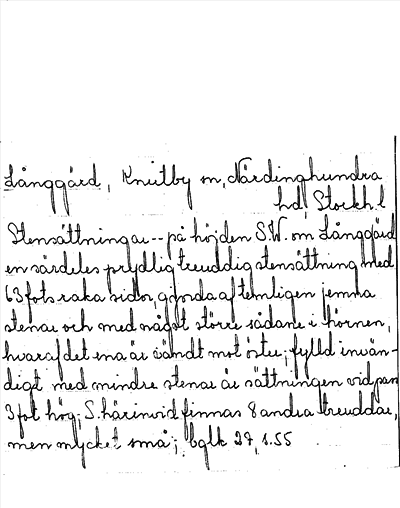 Långgärd, Knutby sn, Närdinghundra
hd, Stockh. l
Stensättningar -- på höjden S.W. om Långgärd
en särdeles prydlig treuddig stensättning med
63 fots raka sidor, gjorda af temligen jemna
stenar och med något större sådane i hörnen,
hvaraf det ena är vändt mot öster; fylld invän-
digt med mindre stenar är sättningen vid pass
3 fot hög; S. härinvid finnas 8 andra treuddar,
men mycket små; bglk 27, s. 55